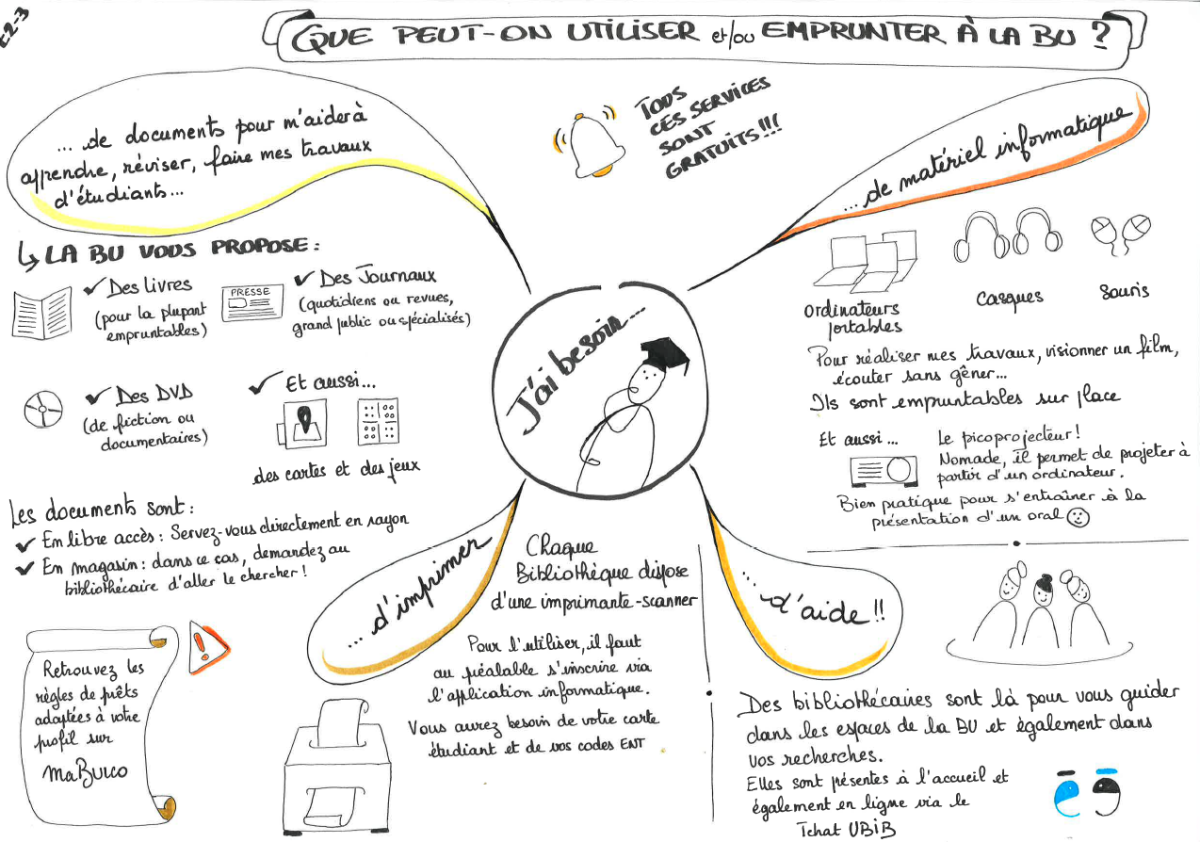 C2-3
QUE PEUT-ON UTILISER et/ou EMPRUNTER À LA BU ?
TOUS
CES SERVICES
SONT
GRATUITS!!!
... de documents pour m'aider à
apprendre, réviser, faire mes travaux
d'étudiants...
LA BU VOUS PROPOSE :
Des Livres
(pour la plupart
empruntables)
PRESSE
Des Journaux
(quotidiens ou revues,
grand public ou spécialisés)
Des DVD
(de fiction ou
documentaires)
Et aussi...
des cartes et des jeux
Les documents sont :
En libre accès : Servez-vous directement en rayon
En magasin : dans ce cas, demandez au
bibliothécaire d'aller le chercher !
Retrouvez les
règles de prêts
adaptées à votre
profil sur
maBUCO
J'ai besoin...
... de matériel informatique
Ordinateurs
portables
Casques
Souris
Pour réaliser mes travaux, visionner un film,
écouter sans gêner...
Ils sont empruntables sur place
Et aussi...
Le picoprojecteur !
Nomade, il permet de projeter à
partir d'un ordinateur.
Bien pratique pour s'entraîner à la
présentation d'un oral
... d'imprimer
Chaque
Bibliothèque dispose
d'une imprimante-scanner
Pour l'utiliser, il faut
au préalable s'inscrire via
l'application informatique.
Vous aurez besoin de votre carte
étudiant et de vos codes ENT
... d'aide !!
Des bibliothécaires sont là pour vous guider
dans les espaces de la BU et également dans
vos recherches.
Elles sont présentes à l'accueil et
également en ligne via le
Tchat UBIB